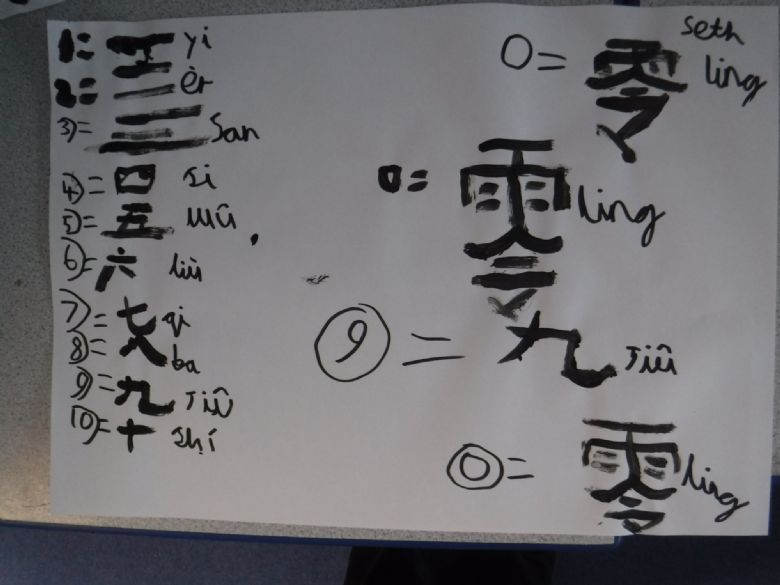 1= 一 yi
2= 二 èr
3)= 三 San
4)= 四 si
5)= 五 wŭ
6)= 六 liù
7)= 七 qi
8)= 八 ba
9)= 九 Jiŭ
10)= 十 shí
Seth
0= 零 ling
0= 零 ling
9 = 九 Jiŭ
0= 零 ling